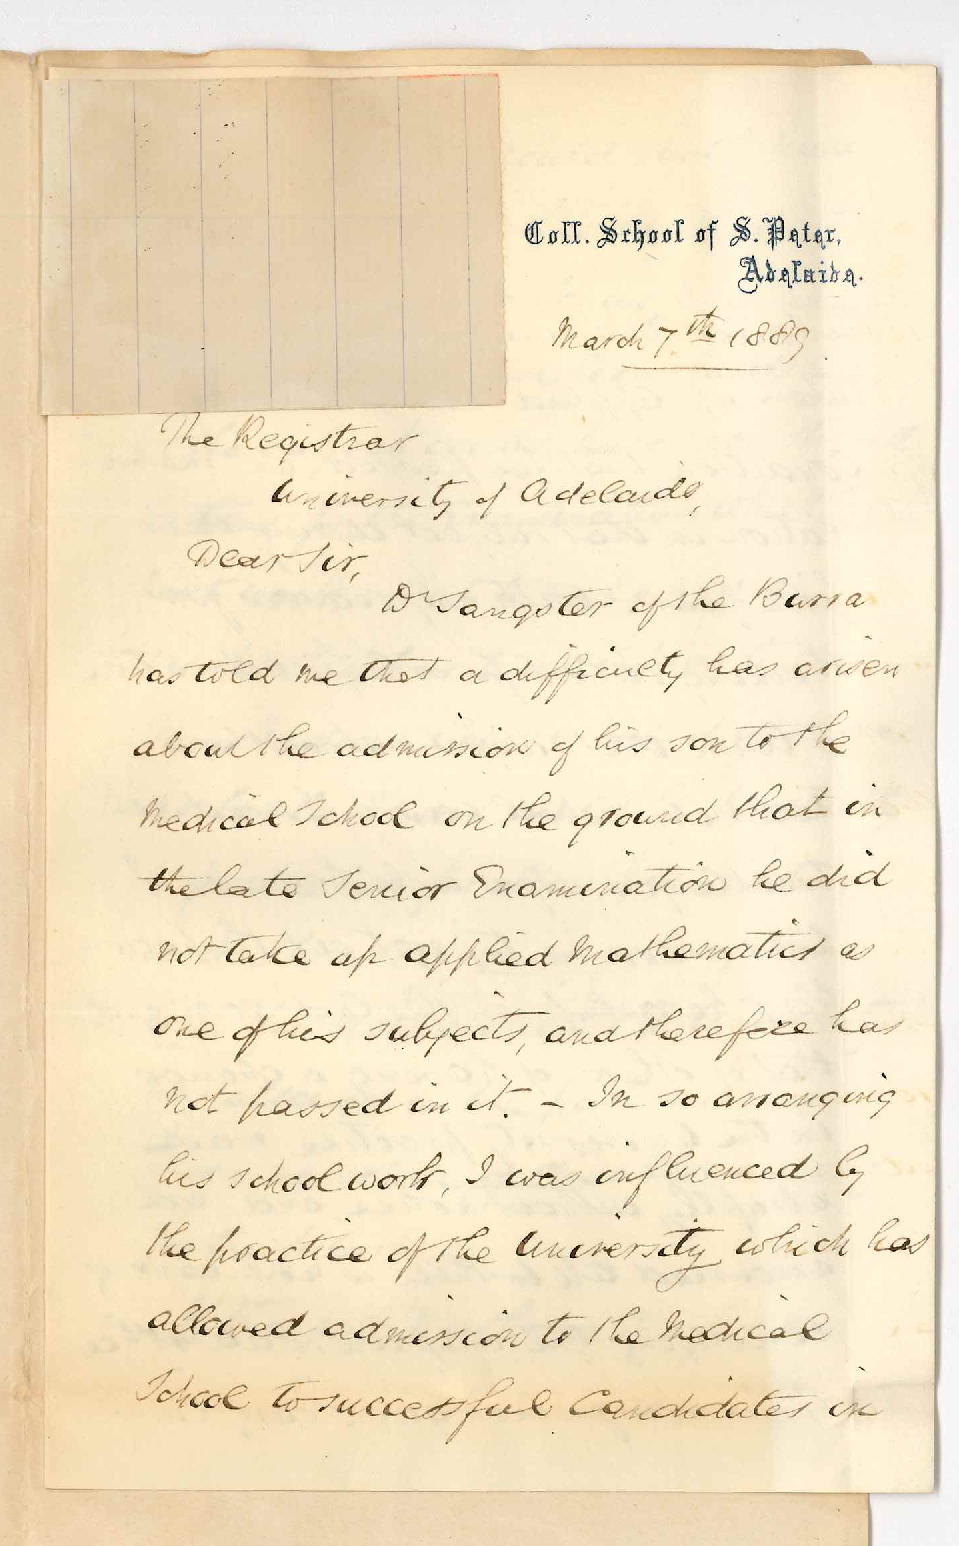 Coll. School of S. Peter,
Adelaide.
March 7th 1889
The Registrar
University of Adelaide,
Dear Sir,
Dr Sangster of the Burra
has told me that a difficulty has arisen
about the admission of his son to the
Medical School on the ground that in
the late Senior Examination he did
not take up applied Mathematics as
one of his subjects, and therefore has
not passed in it. – In so arranging
his school work, I was influenced by
the practice of the University which has
allowed admission to the Medical
School to successful Candidates in